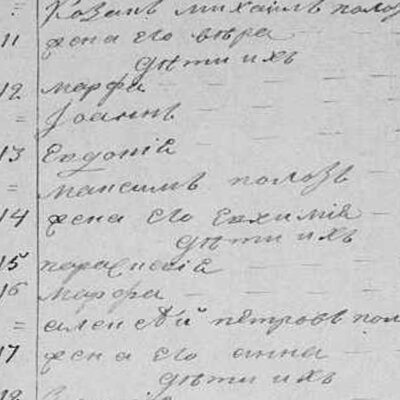 = Козанъ михаилъ полоз
11 жена его вѣра
дѣти ихъ
12 марфа
= Іоаннъ
13 Евдокія
= максимъ полозъ
14 жена его Евхимія
дѣти ихъ
15 параскевія
16 марфа
= алексѣй петровъ пол
17 жена его анна
дѣти ихъ